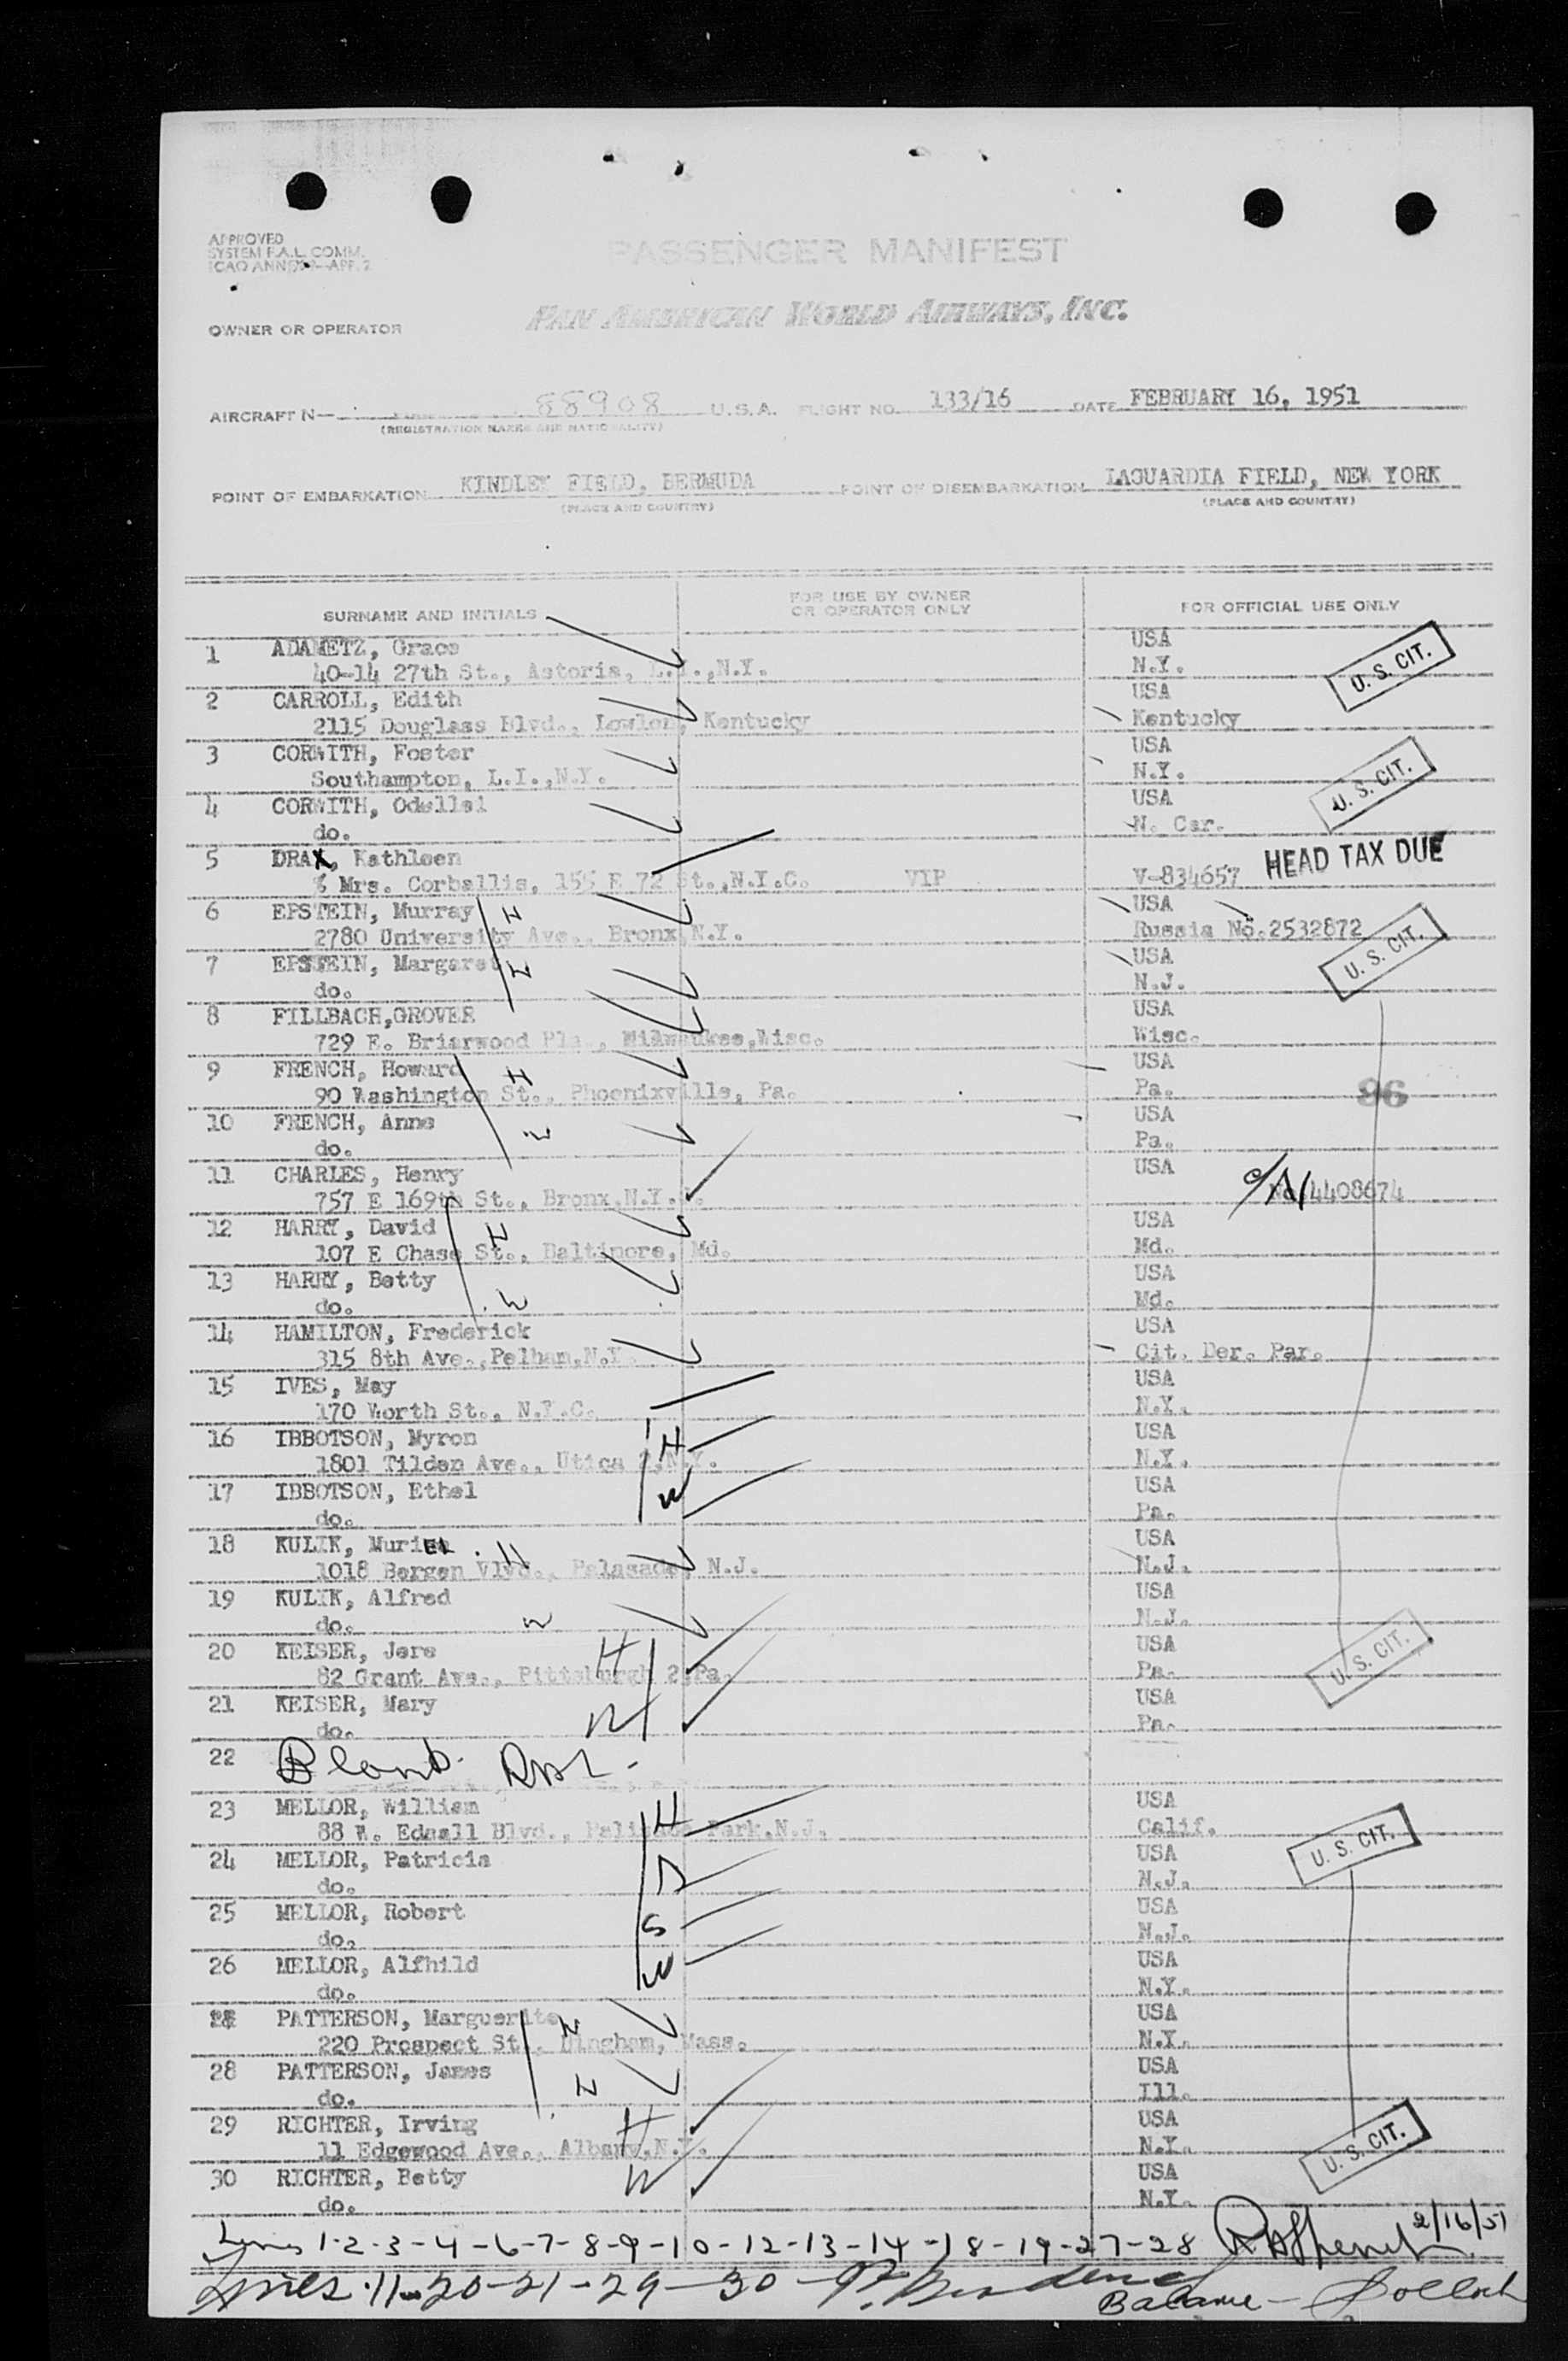 APPROVED
SYSTEM F.A.L. COMM.
ICAO ANNEX 9—APP. 2
PASSENGER MANIFEST
OWNER OR OPERATOR PAN AMERICAN WORLD AIRWAYS, INC.
AIRCRAFT N— 88908 U.S.A. FLIGHT NO. 133/16 DATE FEBRUARY 16, 1951
(REGISTRATION MARKS AND NATIONALITY)
POINT OF EMBARKATION KINDLEY FIELD, BERMUDA POINT OF DISEMBARKATION LAGUARDIA FIELD, NEW YORK
(PLACE AND COUNTRY) (PLACE AND COUNTRY)
SURNAME AND INITIALS FOR USE BY OWNER OR OPERATOR ONLY FOR OFFICIAL USE ONLY
1 ADAMETZ, Grace USA
40-14 27th St., Astoria, L.I.,N.Y. N.Y. U. S. CIT.
2 CARROLL, Edith USA
2115 Douglass Blvd., Kentucky Kentucky
3 CORWITH, Foster USA
Southampton, L.I.,N.Y. N.Y. U. S. CIT.
4 CORWITH, Odellel USA
do. N. Car.
5 DRAX, Kathleen HEAD TAX DUE
% Mrs. Corballis, 155 E 72 St.,N.Y.C. VIP V-834657
6 EPSTEIN, Murray H USA
2780 University Ave., Bronx,N.Y. Russia No.2532872
7 EPSTEIN, Margaret W USA U. S. CIT.
do. N.J.
8 FILLBACH,GROVER USA
729 E. Briarwood Pla., Milwaukee,Wisc. Wisc.
9 FRENCH, Howard H USA
90 Washington St., Phoenixville, Pa. Pa. 96
10 FRENCH, Anne W USA
do. Pa.
11 CHARLES, Henry USA
757 E 169th St., Bronx,N.Y. C/N 4408674
12 HARRY, David H USA
107 E Chase St., Baltimore, Md. Md.
13 HARRY, Betty USA
do. W Md.
14 HAMILTON, Frederick USA
315 8th Ave.,Pelham,N.Y. Cit. Der. Par.
15 IVES, May USA
170 Worth St., N.Y.C. N.Y.
16 IBBOTSON, Myron H USA
1801 Tilden Ave., Utica 2,N.Y. N.Y.
17 IBBOTSON, Ethel W USA
do. Pa.
18 KULIK, Muriel H USA
1018 Bergen Vlvd., Palasade, N.J. N.J.
19 KULIK, Alfred USA
do. W N.J.
20 KEISER, Jere H USA
82 Grant Ave., Pittsburgh 2,Pa. Pa. U. S. CIT.
21 KEISER, Mary USA
do. W Pa.
22 Blank
23 MELLOR, William H USA
88 W. Edsall Blvd., Palisade Park,N.J. Calif. U. S. CIT.
24 MELLOR, Patricia USA
do. D N.J.
25 MELLOR, Robert S USA
do. N.J.
26 MELLOR, Alfhild W USA
do. N.Y.
PATTERSON, Marguerite USA
220 Prospect St., Hingham, Mass. N.Y.
28 PATTERSON, James H USA
do. Ill.
29 RICHTER, Irving H USA
11 Edgewood Ave., Albany,N.Y. N.Y. U. S. CIT.
30 RICHTER, Betty W USA
do. N.Y.
Lines 1-2-3-4-6-7-8-9-10-12-13-14-18-19-27-28 2/16/51
Lines 11-20-21-29-30
Balance —